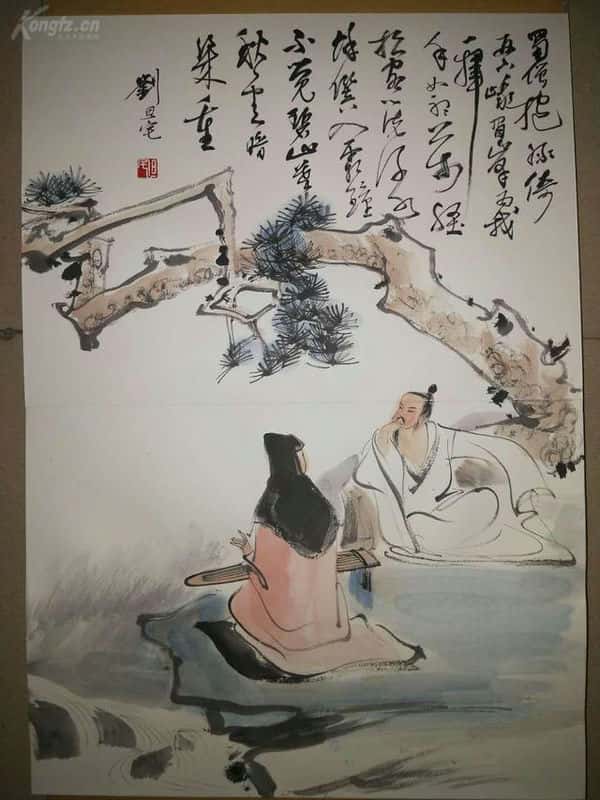 Kongfz.cn
蜀僧抱綠綺
西下峨眉峰為我
一揮
手如聽萬壑
松客心洗流水
餘響入霜鐘
不覺碧山暮
秋雲暗
幾重
劉旦宅